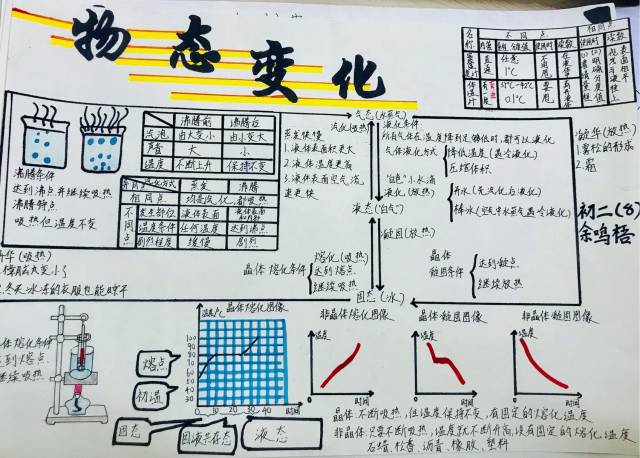 物态变化
不同点
相同点
名称
量程
分度值
使用时
读数
任意
1℃
不甩
35℃~42℃
0.1℃
要甩
沸腾前
沸腾后
气泡
由大变小
由小变大
声音
大
小
温度
不断上升
保持不变
沸腾条件
达到沸点并继续吸热
沸腾特点
吸热但温度不变
异同点
汽化方式
蒸发
沸腾
相同点
均是汽化,都吸热
不同点
发生部位
液体表面
液体表面和内部
温度条件
任何温度
达到沸点
剧烈程度
缓慢
剧烈
蒸发快慢
1.液体表面积更大
2.液体温度更高
3.液体表面空气流速更快
气态(水蒸气)
汽化(吸热)
液化条件
所有气体在温度降到足够低时,都可以液化
气体液化方式
降低温度(遇冷液化)
压缩体积
"白色"小水滴
液化(放热)
液态("白气")
凝固(放热)
凝华(放热)
1.雾凇的形成
2.霜
初二(8)
余鸣梧
熔化(吸热)
晶体熔化条件
达到熔点
继续吸热
晶体
凝固条件
达到凝点
继续放热
固态(冰)
华(吸热)
2.冬天冰冻的衣服也能晾干
体熔化条件
到熔点
继续吸热
晶体熔化图像
温度/℃
100
90
80
70
60
50
40
0 10 20 30 40
时间
熔点
初温
固态
固液共存态
液态
非晶体熔化图像
温度
时间
晶体凝固图像
温度
时间
非晶体凝固图像
温度
时间
晶体:不断吸热,但温度保持不变,有固定的熔化温度
非晶体:只要不断吸热,温度就不断升高,没有固定的熔化温度
石蜡、松香、沥青、橡胶、塑料